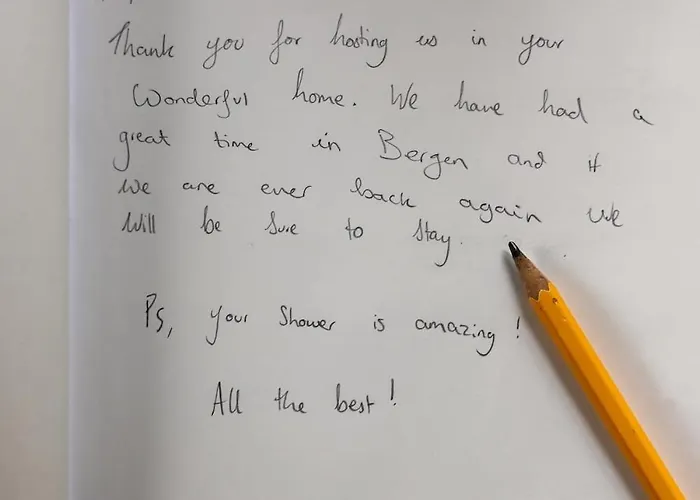 Thank you for hosting us in your
Wonderful home. We have had a
great time in Bergen and if
we are ever back again we
will be sure to stay.
Ps, your shower is amazing!
All the best!